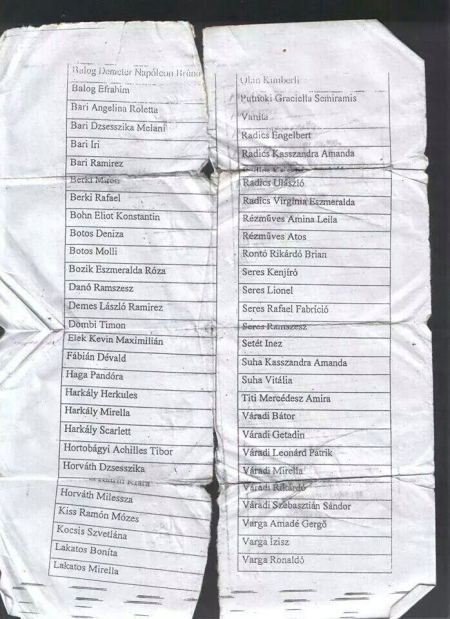 Balog Demeter Napóleon Brúnó
Balog Efrahim
Bari Angelina Roletta
Bari Dzsesszika Melani
Bari Iri
Bari Ramirez
Berki Miron
Berki Rafael
Bohn Eliot Konstantin
Botos Deniza
Botos Molli
Bozik Eszmeralda Róza
Danó Ramszesz
Demes László Ramirez
Dömbi Timon
Elek Kevin Maximilián
Fábián Dévald
Haga Pandóra
Harkály Herkules
Harkály Mirella
Harkály Scarlett
Hortobágyi Achilles Tibor
Horváth Dzsesszika
Klára
Horváth Milessza
Kiss Ramón Mózes
Kocsis Szvetlána
Lakatos Bonita
Lakatos Mirella
Oláh Kimberli
Putnoki Graciella Semiramis
Vanita
Radics Engelbert
Radics Kasszandra Amanda
Radics Ulászló
Radics Virginia Eszmeralda
Rézműves Amina Leila
Rézműves Atos
Rontó Rikárdó Brian
Seres Kenjíró
Seres Lionel
Seres Rafael Fabríció
Seres Ramszesz
Setét Inez
Suha Kasszandra Amanda
Suha Vitália
Titi Mercédesz Amira
Váradi Bátor
Váradi Getadin
Váradi Leonárd Patrik
Váradi Mirella
Váradi Rikárdó
Váradi Szebasztián Sándor
Varga Amadé Gergő
Varga Izisz
Varga Ronaldó